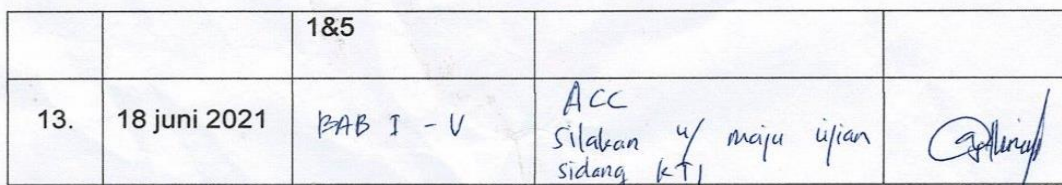 1&5
13. 18 juni 2021 BAB I - V ACC
Silakan u/ maju ujian
sidang KTI